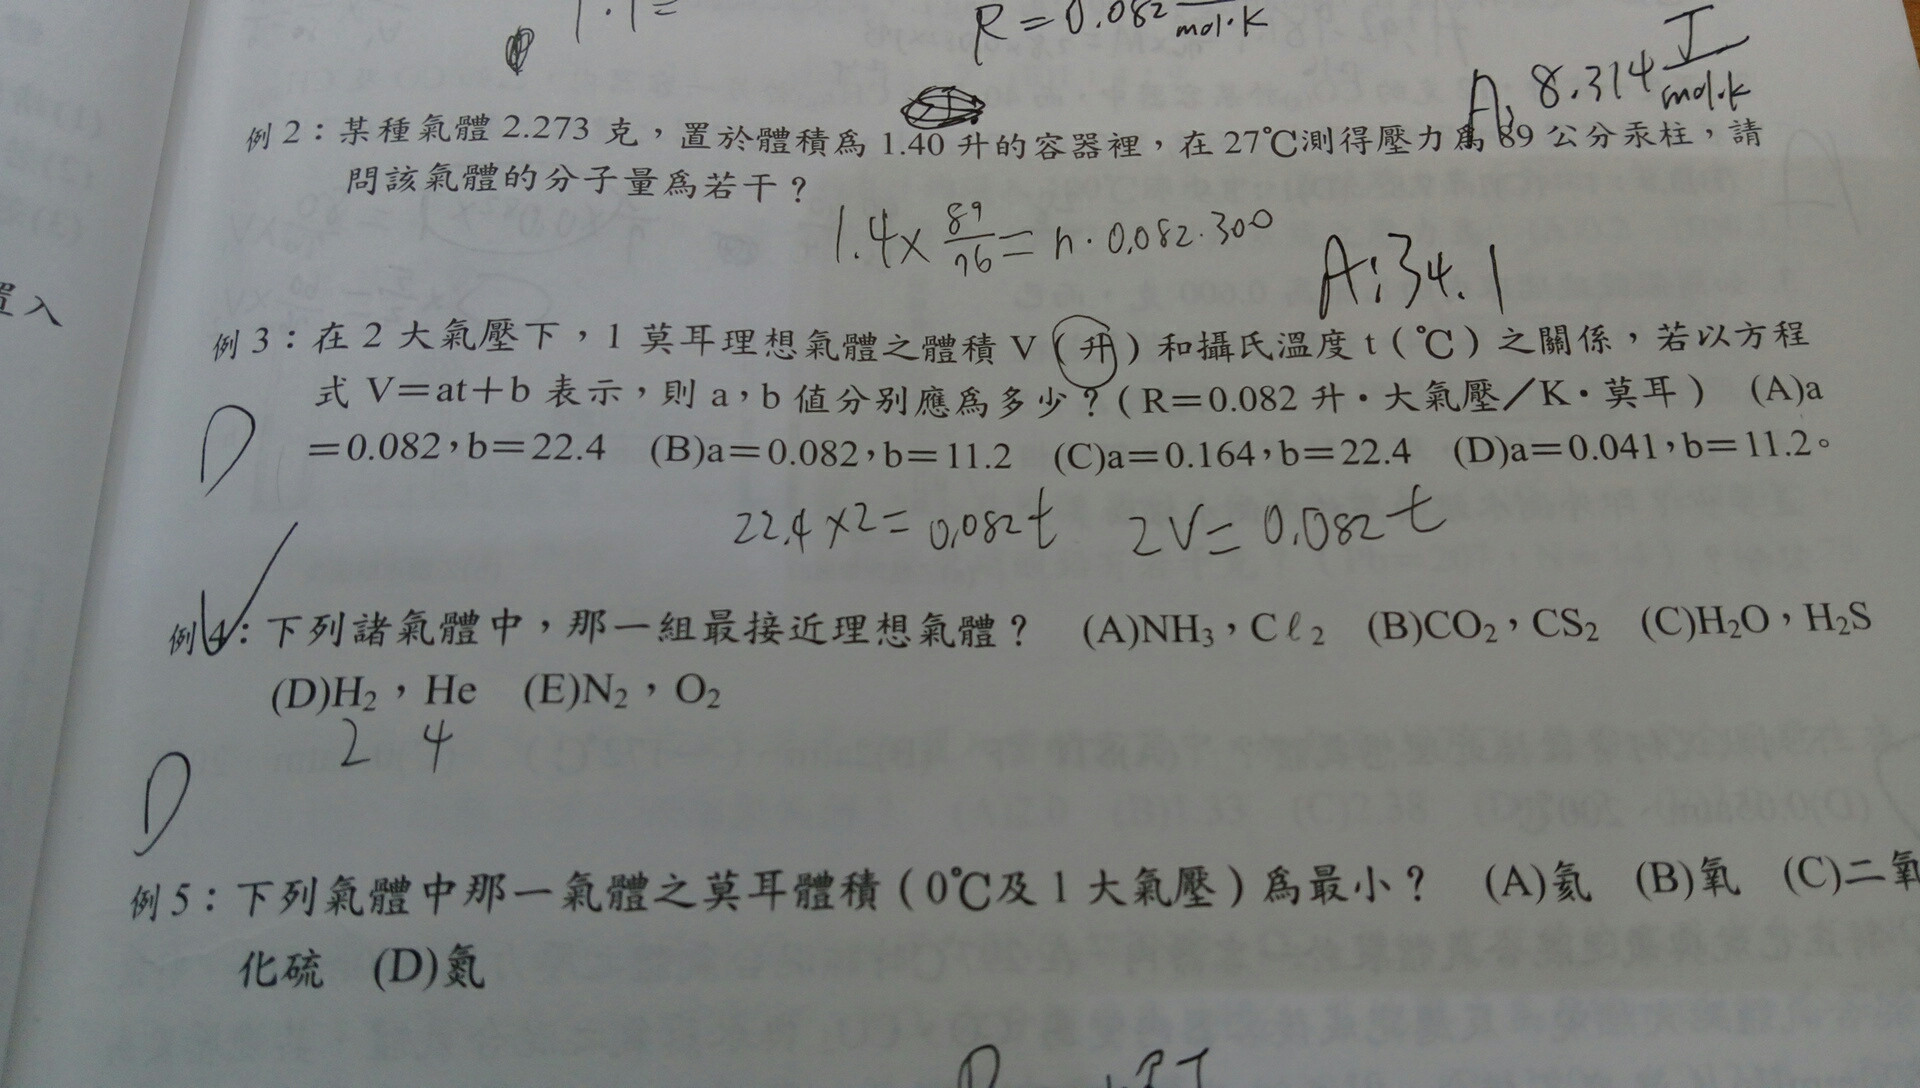 R=0.082
mol·K
A: 8.314 J
mol·k
例2：某種氣體2.273克，置於體積為1.40升的容器裡，在27℃測得壓力為89公分汞柱，請
問該氣體的分子量為若干？
1.4×89/76=n·0.082·300
A:34.1
置入
例3：在2大氣壓下，1莫耳理想氣體之體積V（升）和攝氏溫度t（℃）之關係，若以方程
式V=at+b表示，則a，b值分別應為多少？（R=0.082升·大氣壓／K·莫耳） (A)a
=0.082，b=22.4 (B)a=0.082，b=11.2 (C)a=0.164，b=22.4 (D)a=0.041，b=11.2。
D
22.4×2=0.082t 2V=0.082t
例4：下列諸氣體中，那一組最接近理想氣體？ (A)NH₃，Cℓ₂ (B)CO₂，CS₂ (C)H₂O，H₂S
(D)H₂，He (E)N₂，O₂
2 4
D
例5：下列氣體中那一氣體之莫耳體積（0℃及1大氣壓）為最小？ (A)氦 (B)氧 (C)二氧
化硫 (D)氮